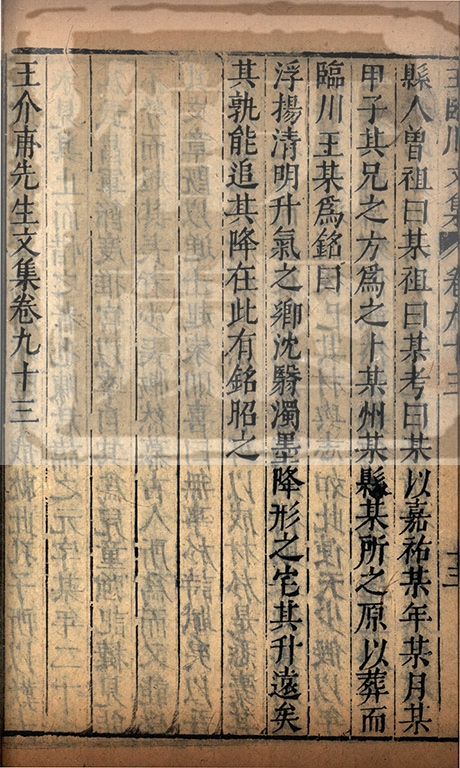 王臨川文集 卷九十三 十三
縣人曾祖曰某祖曰某考曰某以嘉祐某年某月某
甲子其兄之方爲之卜某州某縣某所之原以葬而
臨川王某爲銘曰
浮揚清明升氣之鄉沈翳濁墨降形之宅其升遠矣
其孰能追其降在此有銘昭之
王介甫先生文集卷九十三